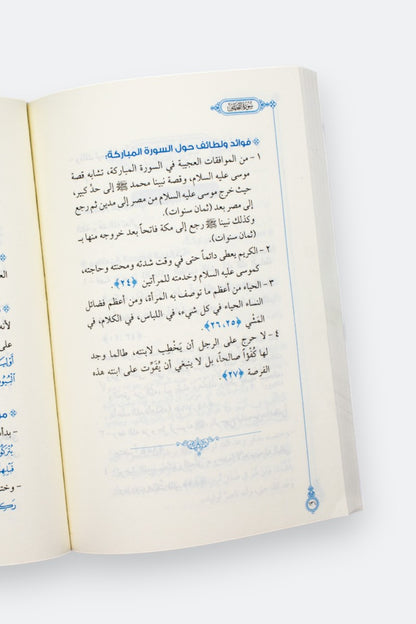 فوائد ولطائف حول السورة المباركة:
١ - من الموافقات العجيبة في السورة المباركة، تشابه قصة
موسى عليه السلام، وقصة نبينا محمد ﷺ إلى حدٍّ كبير،
حيث خرج موسى عليه السلام من مصر إلى مدين ثم رجع
إلى مصر بعد (ثمان سنوات).
وكذلك نبينا ﷺ رجع إلى مكة فاتحاً بعد خروجه منها بـ
(ثمان سنوات).
٢ - الكريم يعطي دائماً حتى في وقت شدته ومحنته وحاجته،
كموسى عليه السلام وخدمته للمرأتين ﴿٢٤﴾.
٣ - الحياء من أعظم ما توصف به المرأة، ومن أعظم فضائل
النساء الحياء في كل شيء، في اللباس، في الكلام، في
المَشْي ﴿٢٥، ٢٦﴾.
٤ - لا حرج على الرجل أن يَخْطِب لابنته، طالما وجد
لها كُفْؤاً صالحاً، بل لا ينبغي أن يُفَوِّت على ابنته هذه
الفرصة ﴿٢٧﴾.